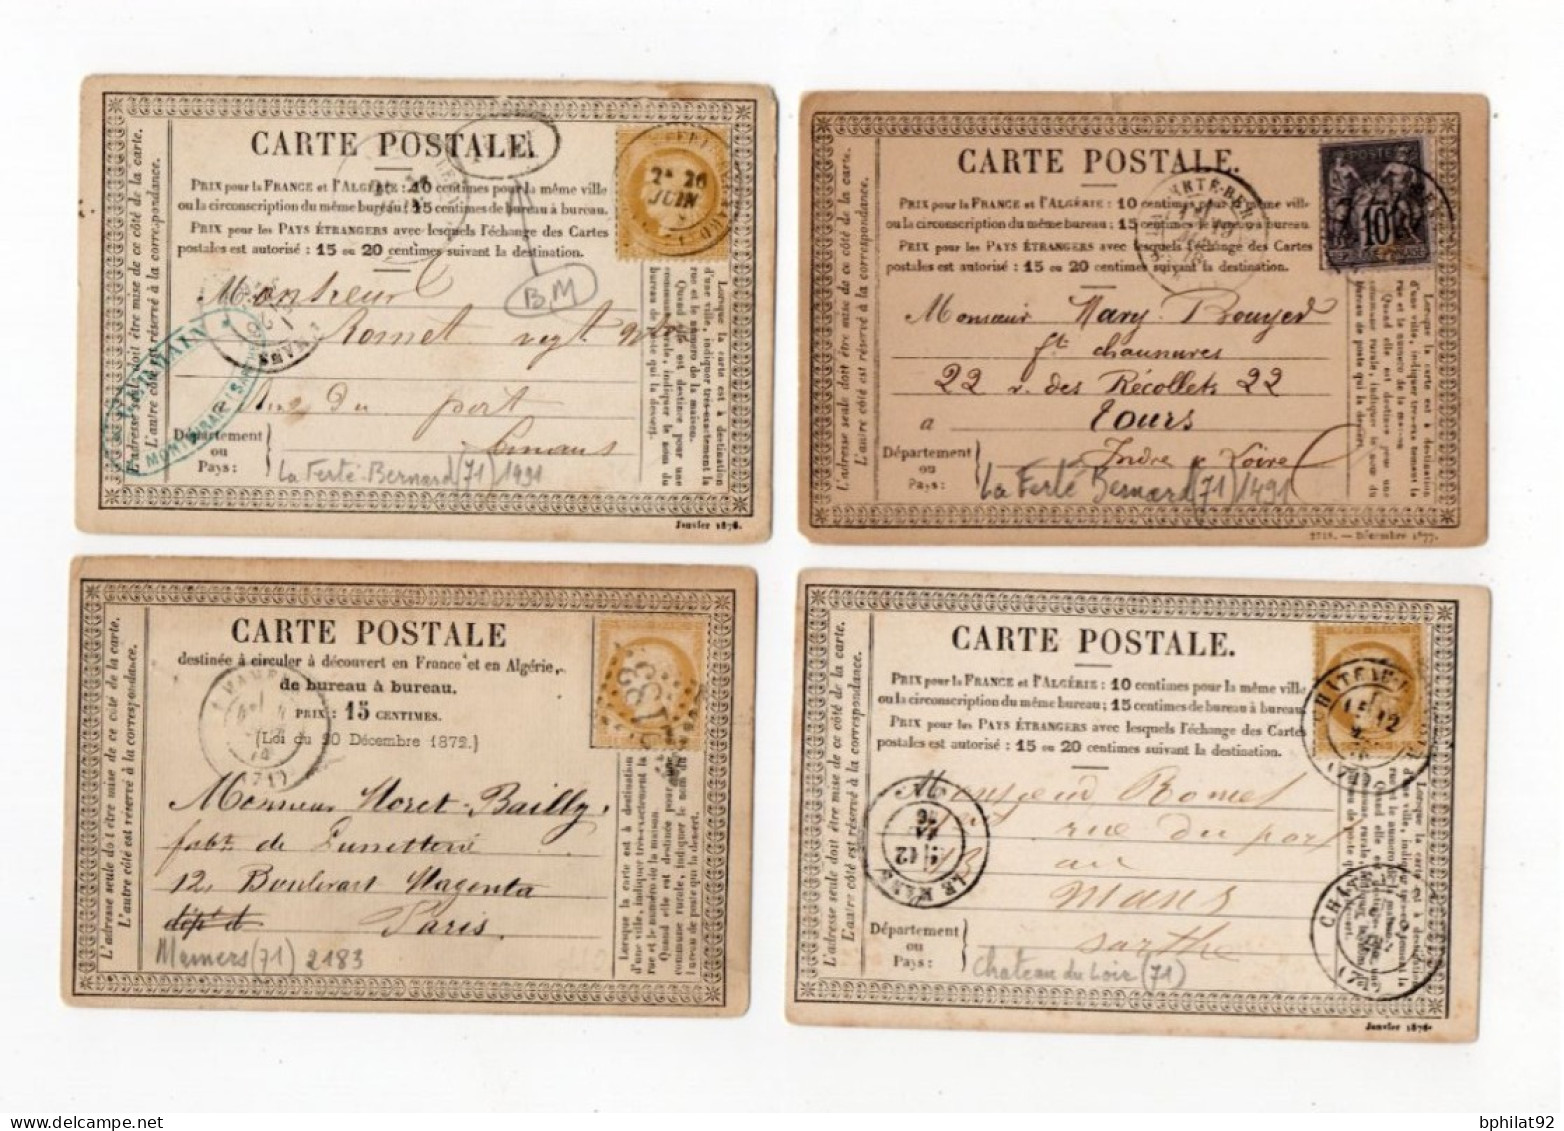 CARTE POSTALE
PRIX pour la FRANCE et l'ALGÉRIE : 10 centimes pour la même ville
ou la circonscription du même bureau; 15 centimes de bureau à bureau.
PRIX pour les PAYS ÉTRANGERS avec lesquels l'échange des Cartes
postales est autorisé : 15 ou 20 centimes suivant la destination.
BM
2E 26
JUIN
Monsieur
Romet
rue du port
Département
ou
Pays :
La Ferté-Bernard (71) 1491
L'adresse seule doit être mise de ce côté de la carte.
L'autre côté est réservé à la correspondance.
Lorsque la carte est à destination
d'une ville, indiquer très-exactement la
rue et le numéro de la maison.
Quand elle est destinée pour une
commune rurale, indiquer le nom du
bureau de poste qui la dessert.
Janvier 1876.
CARTE POSTALE.
PRIX pour la FRANCE et l'ALGÉRIE : 10 centimes pour la même ville
ou la circonscription du même bureau; 15 centimes de bureau à bureau.
PRIX pour les PAYS ÉTRANGERS avec lesquels l'échange des Cartes
postales est autorisé : 15 ou 20 centimes suivant la destination.
10
Monsieur Mary Bouyer
ft chaussures
22 r. des Récollets 22
à Tours
Département
ou
Pays :
Indre & Loire
La Ferté Bernard (71) 1491
L'adresse seule doit être mise de ce côté de la carte.
L'autre côté est réservé à la correspondance.
Lorsque la carte est à destination
d'une ville, indiquer très-exactement la
rue et le numéro de la maison.
Quand elle est destinée pour une
commune rurale, indiquer le nom du
bureau de poste qui la dessert.
2718. — Décembre 1877.
CARTE POSTALE
destinée à circuler à découvert en France et en Algérie,
de bureau à bureau.
PRIX : 15 CENTIMES.
(Loi du 20 Décembre 1872.)
(71)
Monsieur Moret-Bailly,
fabt. de Lunetterie
12, Boulevart Magenta
dépt d
Paris.
Mamers (71) 2183
L'adresse seule doit être mise de ce côté de la carte.
L'autre côté est réservé à la correspondance.
Lorsque la carte est à destination
d'une ville, indiquer très-exactement la
rue et le numéro de la maison.
Quand elle est destinée pour une
commune rurale, indiquer le nom du
bureau de poste qui la dessert.
CARTE POSTALE.
PRIX pour la FRANCE et l'ALGÉRIE : 10 centimes pour la même ville
ou la circonscription du même bureau; 15 centimes de bureau à bureau.
PRIX pour les PAYS ÉTRANGERS avec lesquels l'échange des Cartes
postales est autorisé : 15 ou 20 centimes suivant la destination.
LE MANS
Romet
rue du port
au
Mans
Sarthe
Département
ou
Pays :
Chateau du Loir (71)
L'adresse seule doit être mise de ce côté de la carte.
L'autre côté est réservé à la correspondance.
Janvier 1876.
bphilat92